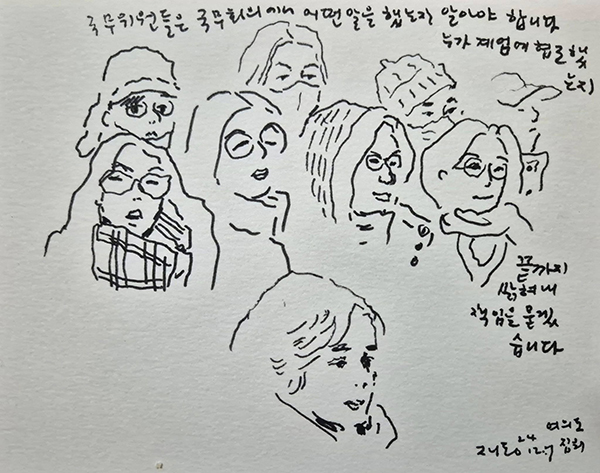 국무위원들은 국무회의에서 어떤 말을 했는지 알아야 합니다
누가 계엄에 협조했
는지
끝까지
밝혀내
책임을 묻겠
습니다
여의도
집회